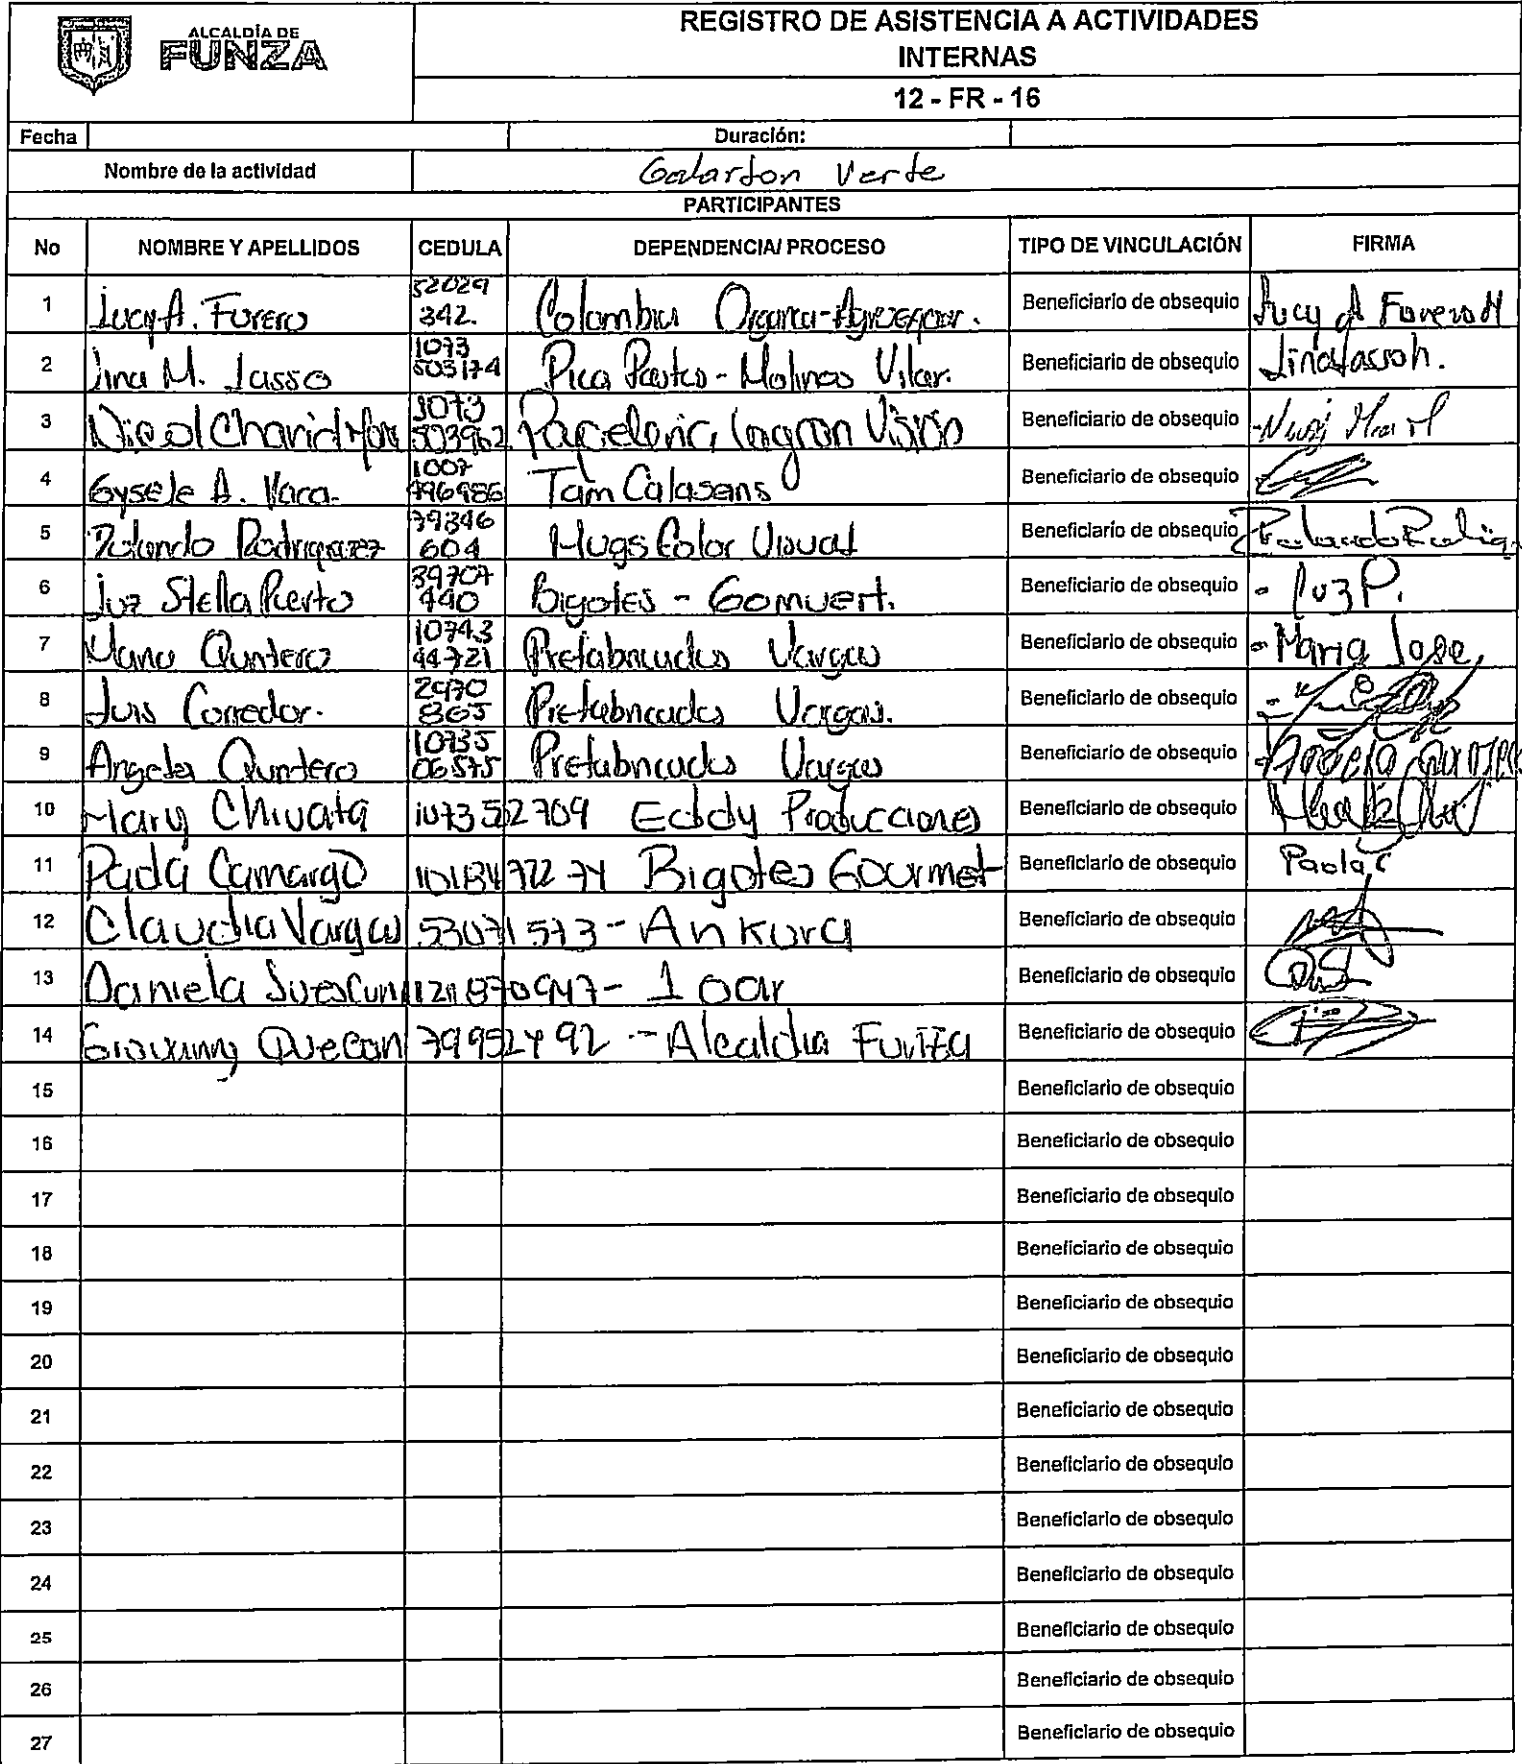 ALCALDÍA DE
FUNZA
REGISTRO DE ASISTENCIA A ACTIVIDADES
INTERNAS
12 - FR - 16
Fecha Duración:
Nombre de la actividad Galardon Verde
PARTICIPANTES
No NOMBRE Y APELLIDOS CEDULA DEPENDENCIA/ PROCESO TIPO DE VINCULACIÓN FIRMA
1 Lucy A. Forero 52029 342. Colombia Organica- Beneficiario de obsequio Lucy A Forero M
2 Lina M. Lasso 1073 503174 Pica Pastos - Molinos Vilar. Beneficiario de obsequio Lina Lasso h.
3 Nicol Charid 1073 503962 Papeleria Visión Beneficiario de obsequio
4 Gysele A. Vaca. 1007 496986 Tam Calasans Beneficiario de obsequio
5 Rolando Rodriguez 79346 604 Mugs Color Visual Beneficiario de obsequio Rolando
6 Luz Stella Puerto 39707 440 Bigotes - Gomuert. Beneficiario de obsequio - luz P.
7 Maria Quintero 10743 44721 Prefabricados Vargas Beneficiario de obsequio - Maria Jose
8 Luis Corredor. 2970 865 Prefabricados Vargas. Beneficiario de obsequio
9 Angela Quintero 10735 06575 Prefabricados Vargas Beneficiario de obsequio - Angela Quintero
10 Mary Chivata 1073 502709 Eddy Producciones Beneficiario de obsequio
11 Paola Camargo Bigotes Gourmet Beneficiario de obsequio Paola C
12 Claudia Vargas 53071573 - Ankura Beneficiario de obsequio
13 Daniela Suescun 1121870947 - Beneficiario de obsequio
14 Giovanny Quecan 79952492 - Alcaldia Funza Beneficiario de obsequio
15 Beneficiario de obsequio
16 Beneficiario de obsequio
17 Beneficiario de obsequio
18 Beneficiario de obsequio
19 Beneficiario de obsequio
20 Beneficiario de obsequio
21 Beneficiario de obsequio
22 Beneficiario de obsequio
23 Beneficiario de obsequio
24 Beneficiario de obsequio
25 Beneficiario de obsequio
26 Beneficiario de obsequio
27 Beneficiario de obsequio